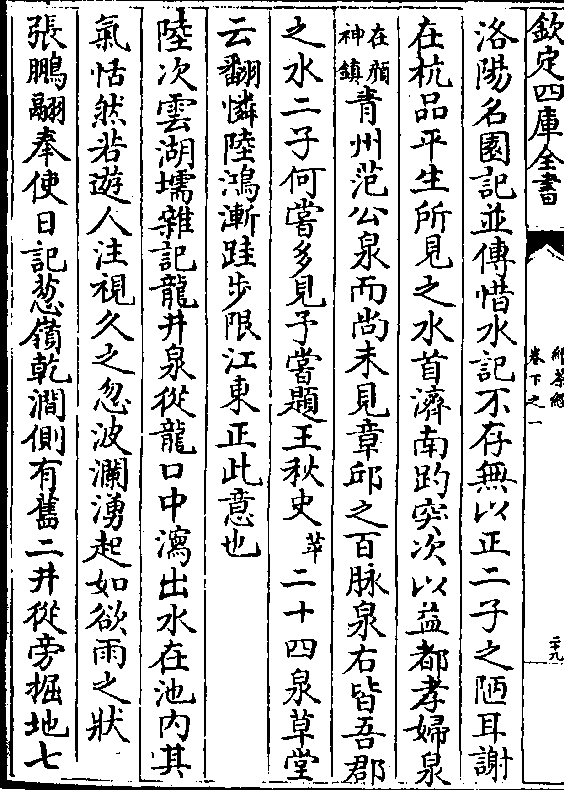 欽定四庫全書
續茶經
卷下之一
二十九
洛陽名園記並傳惜水記不存無以正二子之陋耳謝
在杭品平生所見之水首濟南趵突次以益都孝婦泉
在顏神鎮青州范公泉而尚未見章邱之百脉泉右皆吾郡
之水二子何嘗多見予嘗題王秋史苹二十四泉草堂
云翻憐陸鴻漸跬步限江東正此意也
陸次雲湖壖雜記龍井泉從龍口中瀉出水在池内其
氣恬然若遊人注視久之忽波瀾湧起如欲雨之狀
張鵬翮奉使日記葱嶺乾澗側有舊二井從旁掘地七